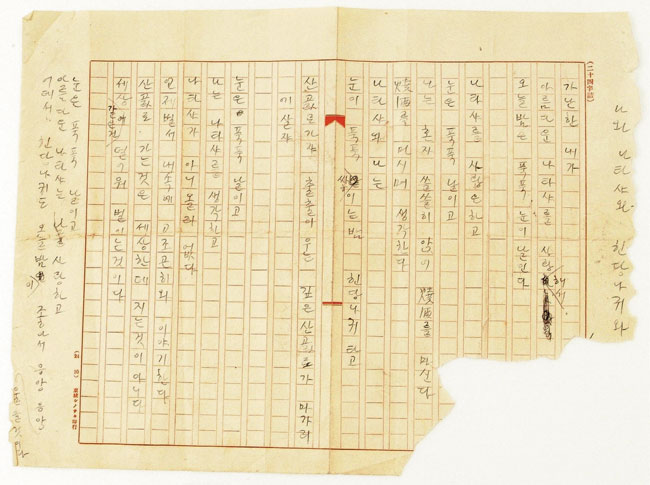 나와 나타샤와 힌당나귀와
(二十四字詰)
가난한 내가
아름다운 나타샤를 사랑해서
오늘밤은 푹푹 눈이 날린다
나타샤를 사랑은하고
눈은 푹푹 날이고
나는 혼자 쓸쓸히 앉어 燒酒를 마신다
燒酒를 마시며 생각한다
나타샤와 나는
눈이 푹푹 쌓이는밤 힌당나귀 타고
산골로가쟈 출출이 우는 깊은산골로가 마가리
에살쟈
눈은 푹푹 날이고
나는 나타샤를 생각하고
나타샤가 아니올리 없다
언제벌서 내속에 고조곤히와 이야기한다
산골로 가는것은 세상한테 지는것이아니다
세상같은건 더러워 벌이는것이다
눈은 푹푹 날이고
아름다운 나타샤는 나를 사랑하고
어데서 힌당나귀도 오늘밤이 좋아서 응앙 응앙
울을것이다